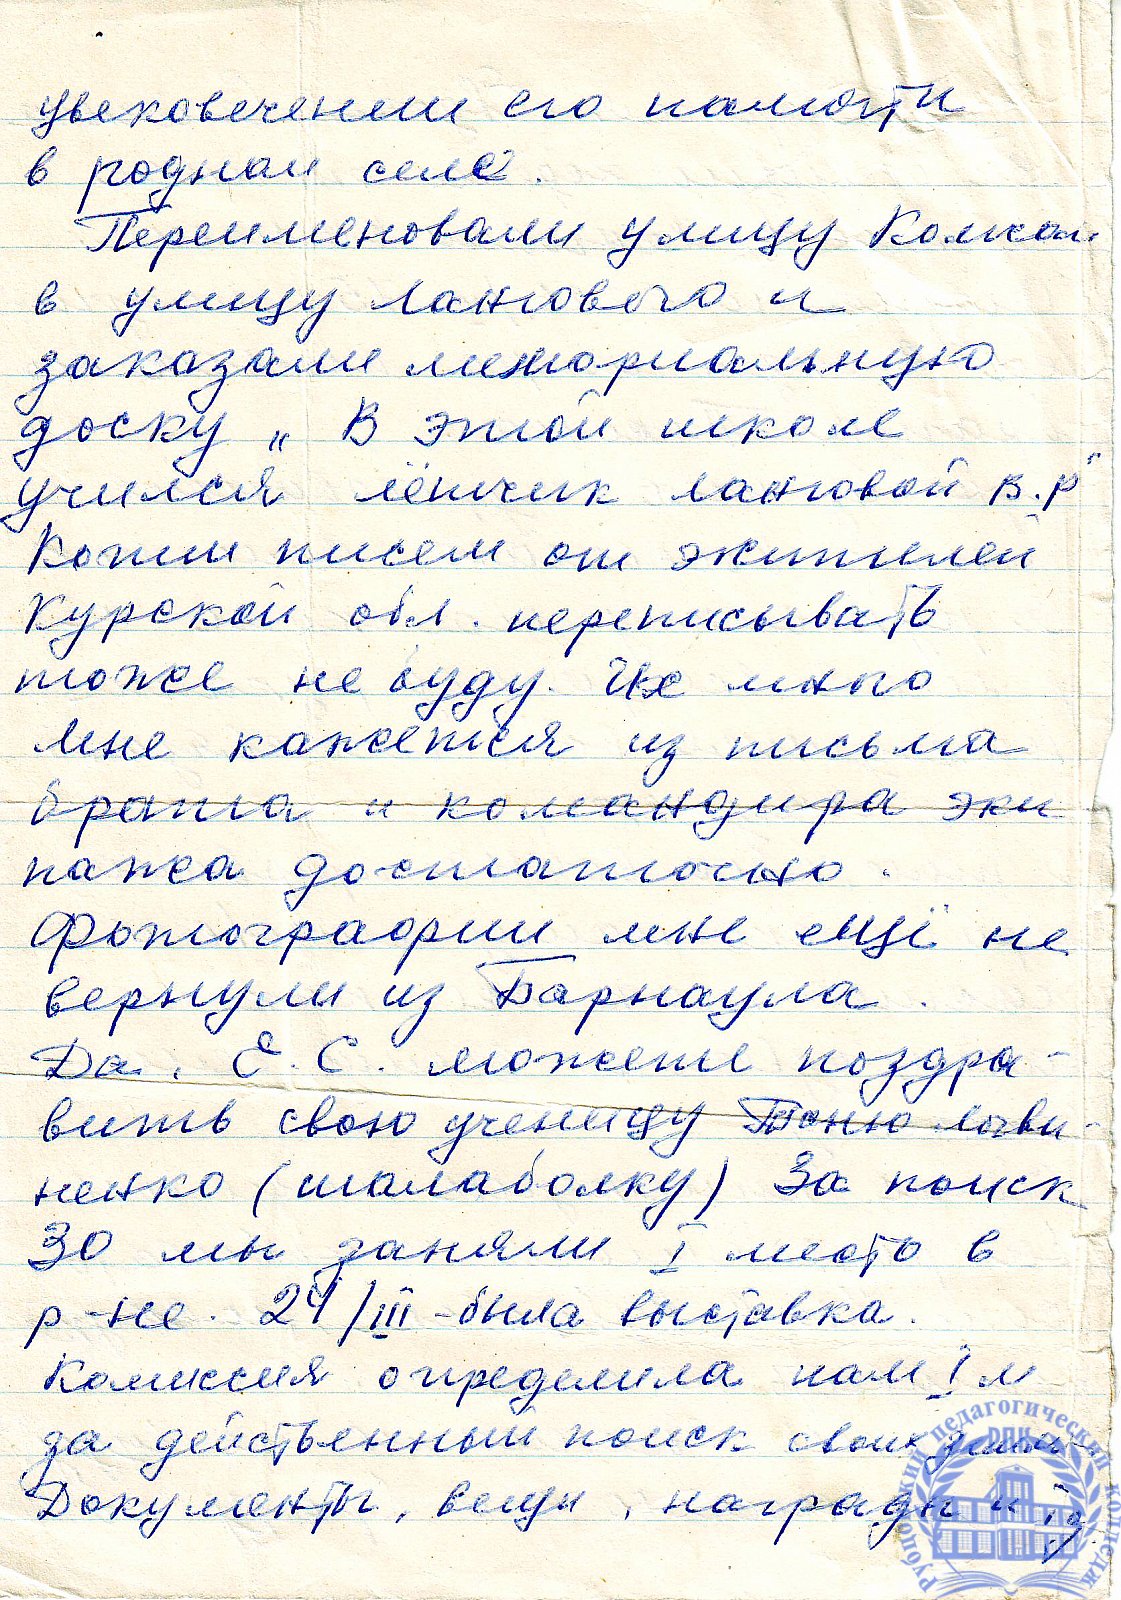 увековечении его памяти
в родном селе.
Переименовали улицу
в улицу Ланового и
заказали мемориальную
доску „ В этой школе
учился лётчик Лановой В.Р"
Копии писем от жителей
Курской обл. переписывать
тоже не буду. Их много
Мне кажется из письма
брата и командира эки
пажа достаточно.
Фотографии мне ещё не
вернули из Барнаула.
Да, Е.С. можете поздра-
вить свою ученицу Тоню Логви-
ненко (Шалаболку) За поиск
30 мы заняли I место в
р-не. 24/III-была выставка.
Комиссия определила нам I м
за действенный поиск своих
Документы, вещи, награды и
Рубцовский педагогический колледж
РПК